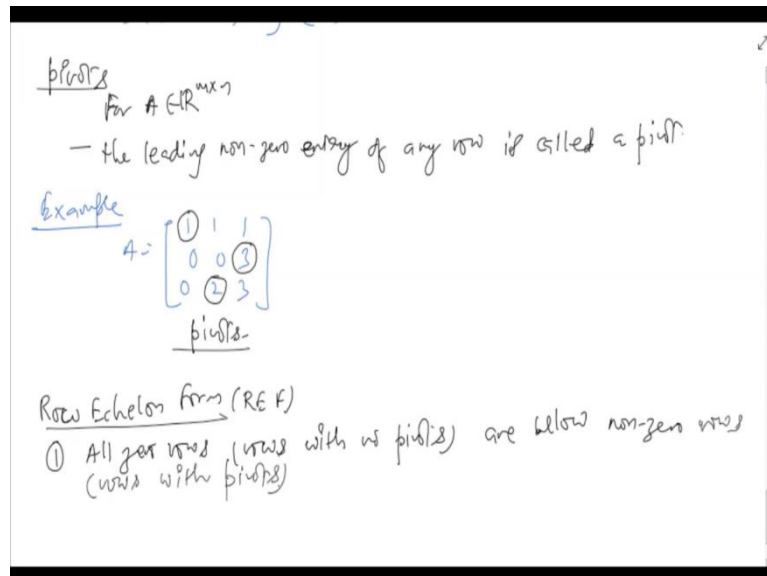 pivots
For A ∈ ℝ^{m×n}
— the leading non-zero entry of any row is called a pivot.
Example
A = [ 1 1 1
0 0 3
0 2 3 ]
pivots
Row Echelon Form (REF)
① All zero rows (rows with no pivots) are below non-zero rows
(rows with pivots)